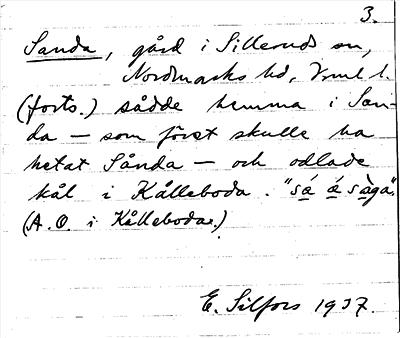 3.
Sanda, gård i Sillerud sn,
Nordmarks hd, Vrml l.
(forts.) sådde hemma i San-
da — som först skulle ha
hetat Sånda — och odlade
kål i Kålleboda. "sä́ ä́ sàga".
(A. O. i Kållebodar.)
E. Silfors 1937.